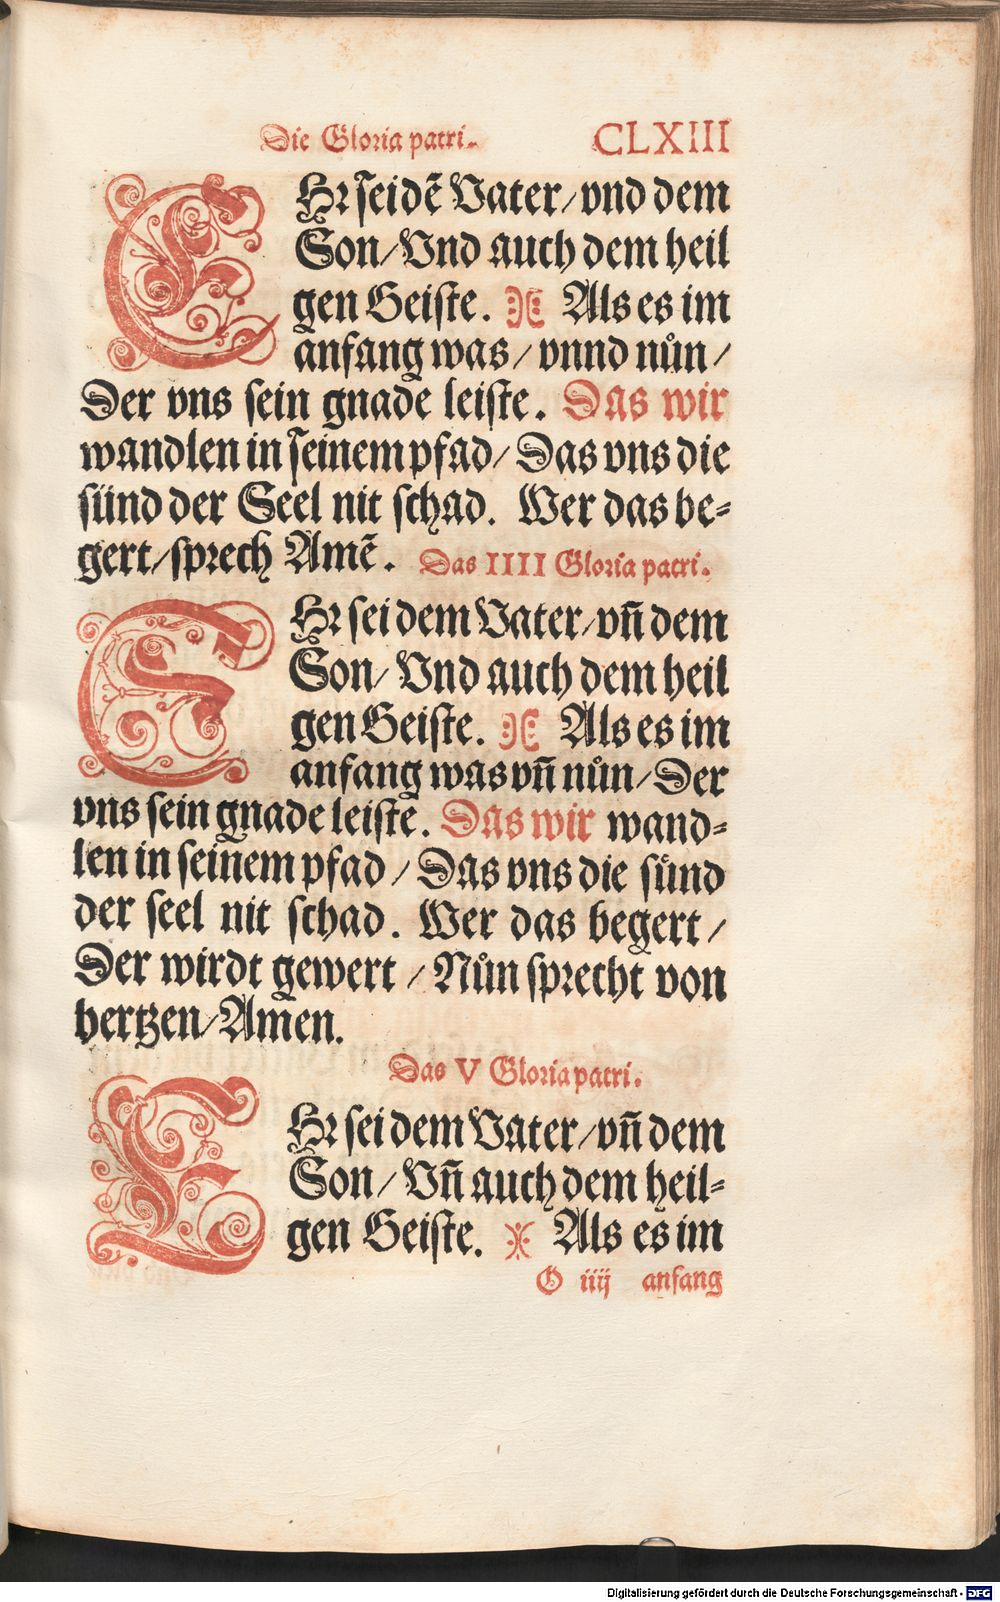 Die Gloria patri. CLXIII
EHr seidē Vater/vnd dem
Son/Vnd auch dem heil
gen Geiste. Als es im
anfang was/vnnd nůn/
Der vns sein gnade leiste. Das wir
wandlen in seinem pfad/Das vns die
sünd der Seel nit schad. Wer das be⸗
gert/sprech Amē. Das IIII Gloria patri.
EHr sei dem Vater/vñ dem
Son/Vnd auch dem heil
gen Geiste. Als es im
anfang was vñ nůn/Der
vns sein gnade leiste. Das wir wand⸗
len in seinem pfad/Das vns die sünd
der seel nit schad. Wer das begert/
Der wirdt gewert/Nůn sprecht von
hertzen/Amen.
Das V Gloria patri.
EHr sei dem Vater/vñ dem
Son/Vñ auch dem heil⸗
gen Geiste. Als es im
O iiij anfang
Digitalisierung gefördert durch die Deutsche Forschungsgemeinschaft - DFG